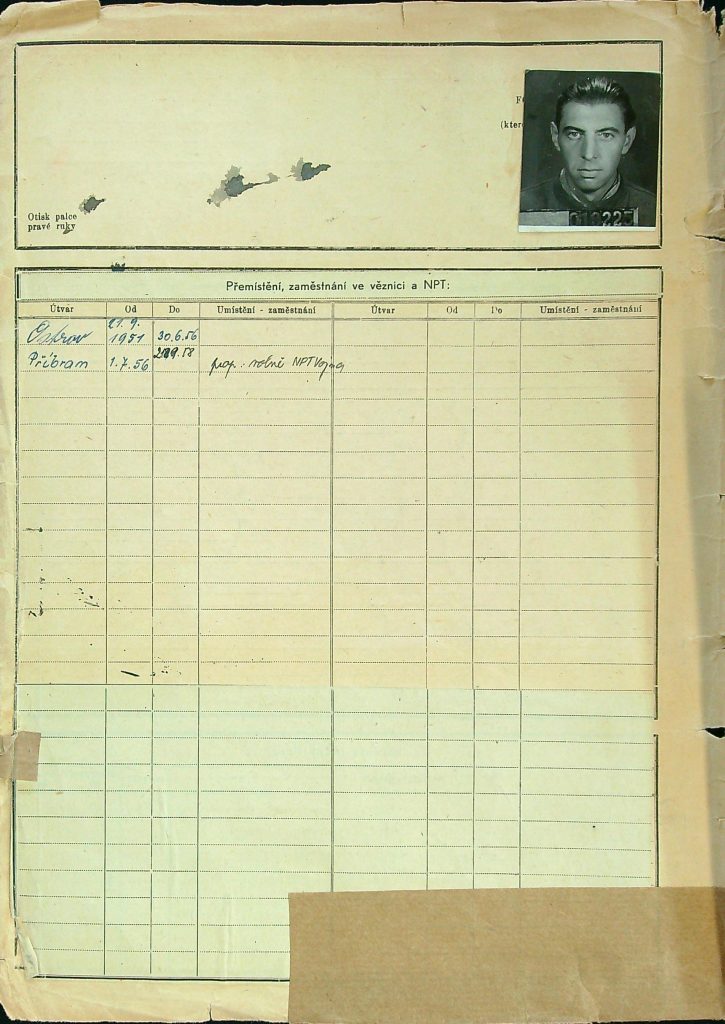 F
(kter
01022
Otisk palce
pravé ruky
Přemístění, zaměstnání ve věznici a NPT:
Útvar Od Do Umístění - zaměstnání Útvar Od Do Umístění - zaměstnání
Ostrov 21.9. 1951 30.6.56
Příbram 1.7.56 prop. NPT Vojna